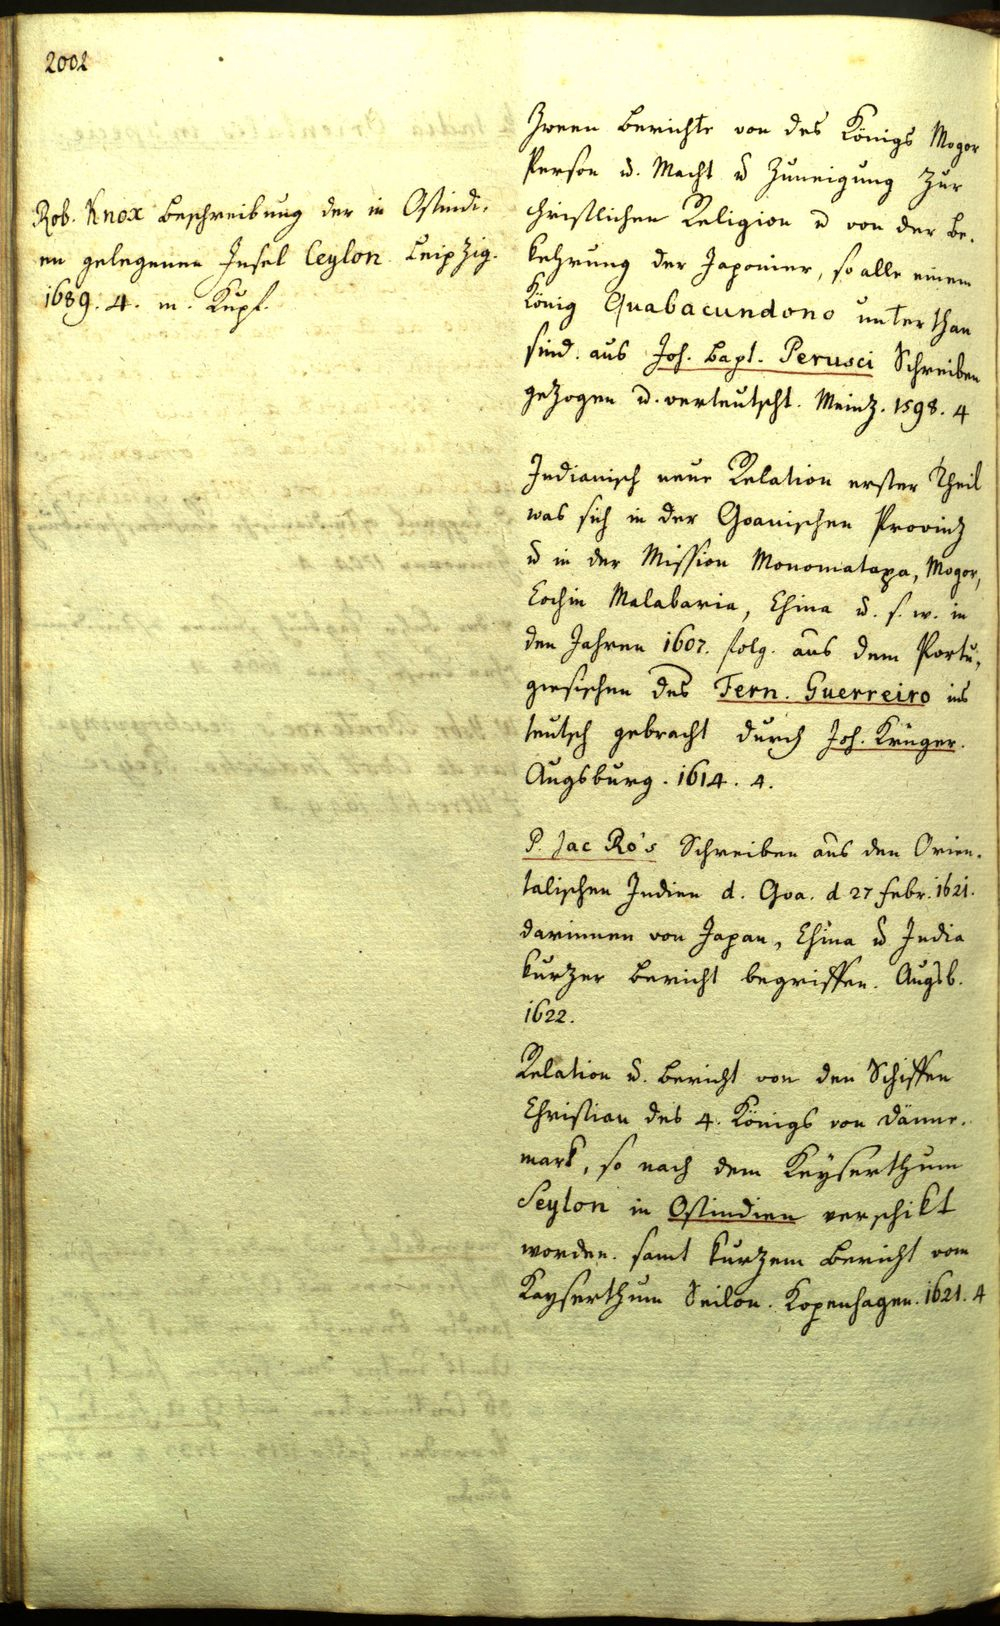 2002
Rob. Knox Beschreibung der in Ostindi-
en gelegenen Insel Ceylon Leipzig.
1689. 4. m. Kupf.
Zween Berichte von des Königs Mogor
Person u. Macht u Zuneigung zur
christlichen Religion u von der Be-
kehrung der Japonier, so alle einem
König Quabacundono unterthan
sind. aus Joh. Bapt. Perusci Schreiben
gezogen u. verteutscht. Meinz. 1598. 4
Indianisch neue Relation erster Theil
was sich in der Goanischen Provinz
u in der Mission Monomatapa, Mogor,
Cochin Malabaria, China u. s. w. in
den Jahren 1607. folg. aus dem Portu-
giesischen des Fern. Guerreiro ins
teutsch gebracht durch Joh. Krüger.
Augsburg. 1614. 4.
P. Jac Ro's Schreiben aus den Orien-
talischen Indien d. Goa. d 27 Febr. 1621.
darinnen von Japan, China u India
kurzer Bericht begriffen. Augsb.
1622.
Relation u. Bericht von den Schiffen
Christian des 4. Königs von Dänne-
mark, so nach dem Keyserthum
Seylon in Ostindien verschikt
worden. samt kurzem Bericht vom
Kayserthum Seilon. Kopenhagen. 1621. 4